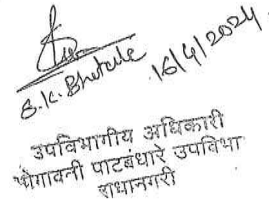 S.K. Bhetale
16/4/2024
उपविभागीय अधिकारी
भोगावती पाटबंधारे उपविभा
राधानगरी